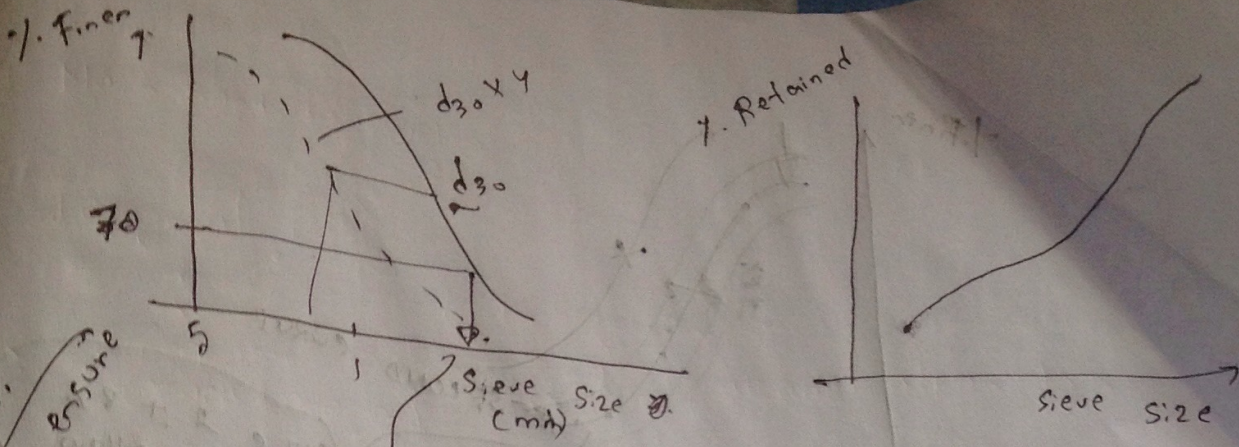 %. Finer
d30 x 4
d30
70
5
1
Sieve Size
(mm)
ensure
%. Retained
Sieve Size